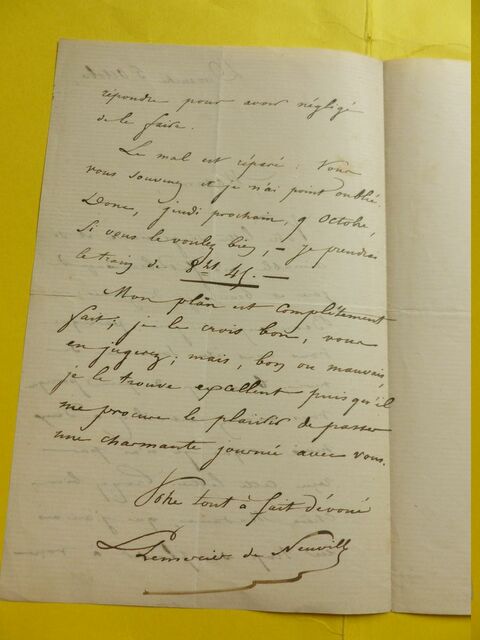 répondre pour avoir négligé
de le faire.
Le mal est réparé : Vous
vous souvenez et je n'ai point oublié.
Donc, jeudi prochain, 9 Octobre,
Si vous le voulez bien, – je prendrai
le train de 8ht 45. –
Mon plan est complètement
fait ; je le crois bon, vous
en jugerez ; mais, bon ou mauvais,
je le trouve excellent puisqu'il
me procure le plaisir de passer
une charmante journée avec vous.
Votre tout à fait dévoué
Lemercier de Neuville